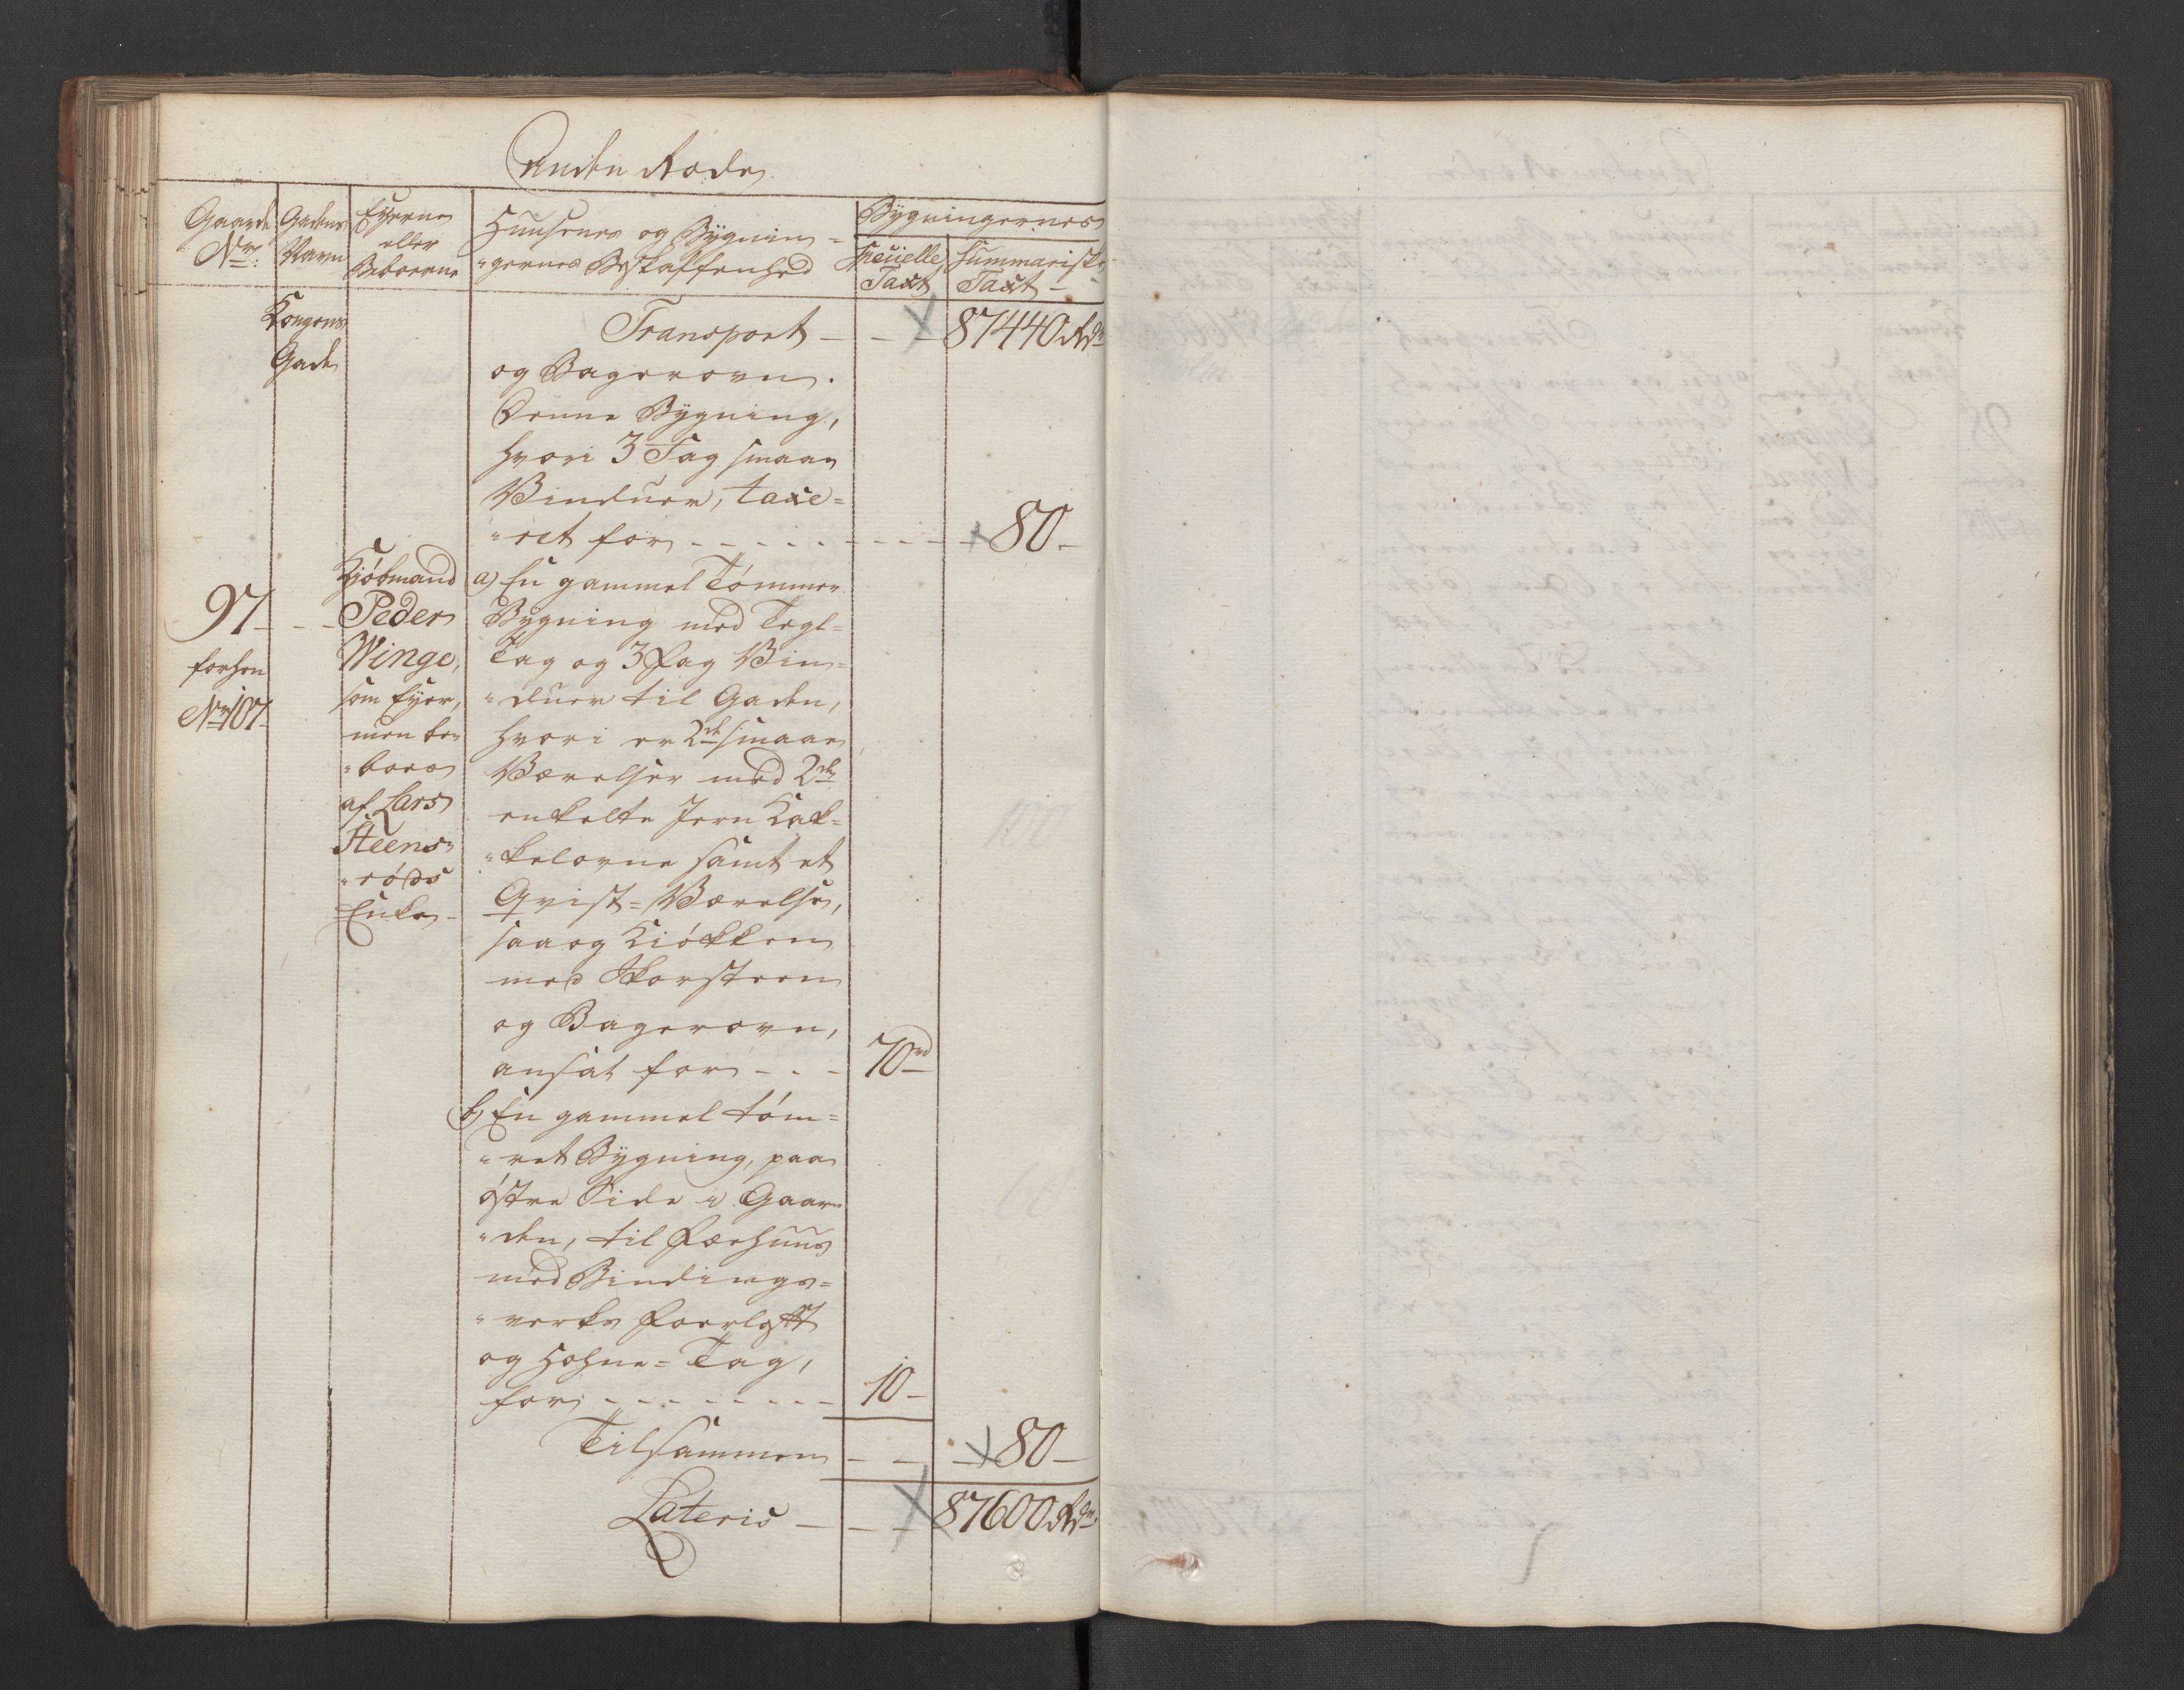 Anden Rode
Gaarde
Nr:
Gadens
Navn
Eyerne
eller
Beboerne
Huusenes og Bÿgnin-
"gernes Beskaffenhed
Bÿgningernes
Specielle
Taxt
Summariske
Taxt
Kongens
Gade
Transport - - - 87440 Rdr
og Bagerovn.
Denne Bÿgning,
hvori 3 Fag smaae
Vinduer, taxe=
"ret for - - - - - - - - 80 -
97 - - -
forhen
Nr 107
Kjöbmand
Peder
Winge,
som Eyer,
men be"
"boes
af Lars
Steens"
"röds
Enke -
a) En gammel Tømmer
Bÿgning med Tegl=
Tag og 3 Fag Vin=
"duer til Gaden,
hvori er 2de smaae
Værelser med 2de
enkelte Jern Kak=
"kelovne samt et
Qvist=Værelse,
saa og Kiökken
med Skorsteen
og Bagerovn,
ansat for - - - 70 rd
b) En gammel töm=
"ret Bÿgning, paa
östre Side i Gaar"
"den, til Færhuus
med Bindings=
"verks
og Hohne=Tag,
for - - - - - - - - 10 -
Tilsammen - - - 80 -
Lateris - - - 87600 Rdr